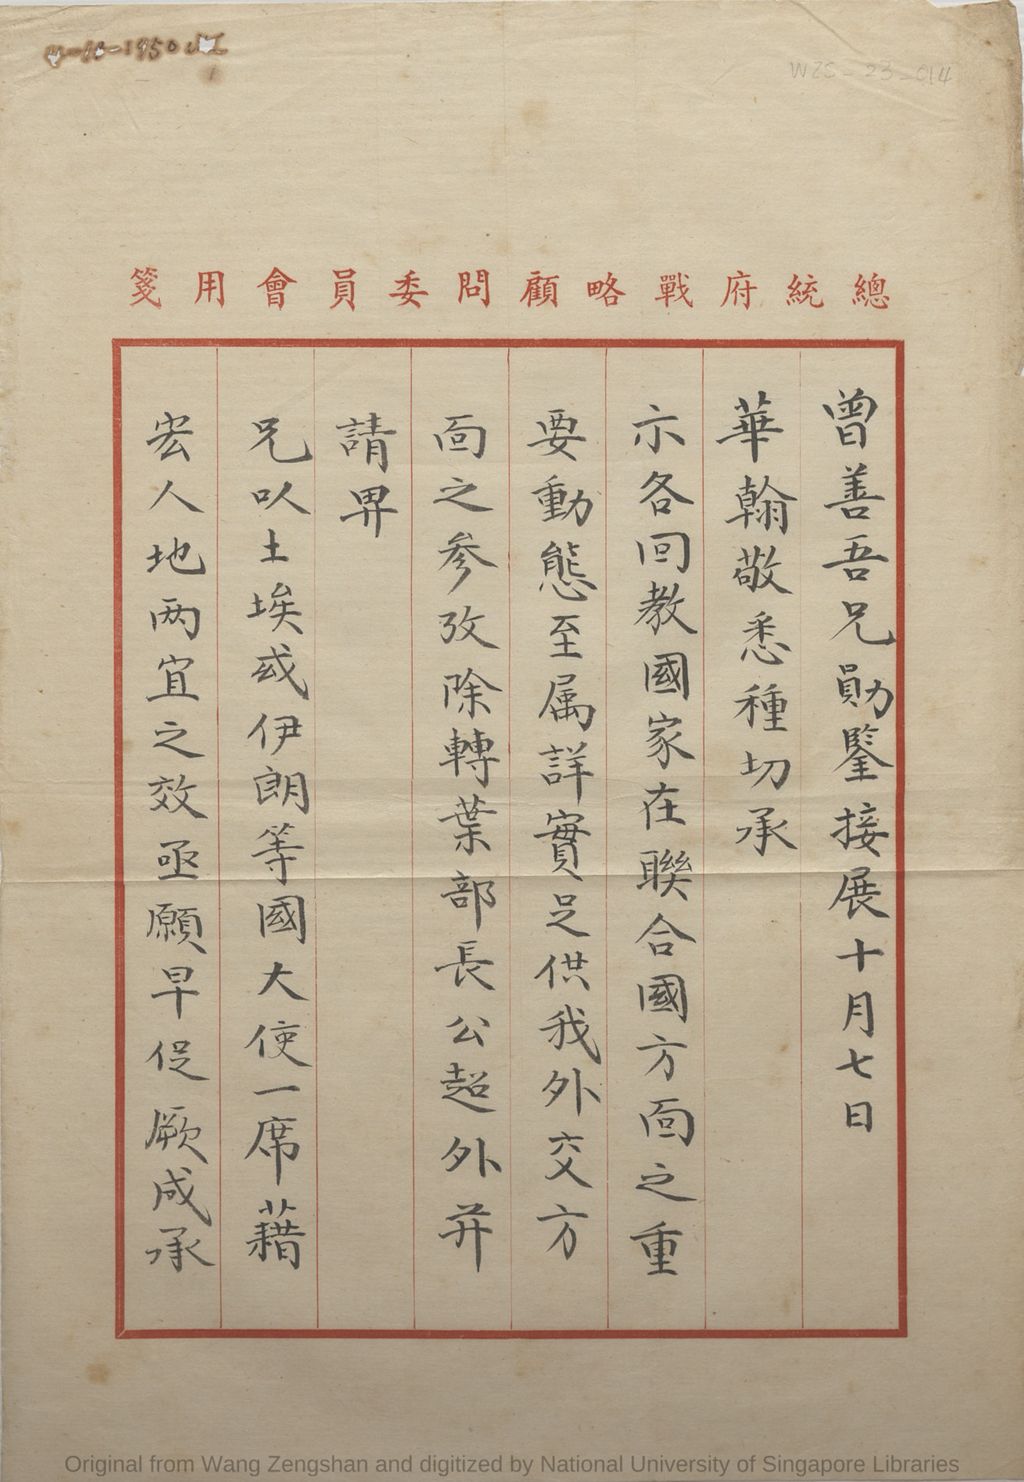 WZS-23-014
總統府戰略顧問委員會用箋
曾善吾兄勛鑒接展十月七日
華翰敬悉種切承
示各回教國家在聯合國方面之重
要動態至属詳實足供我外交方
面之參攷除轉葉部長公超外并
請畀
兄以土埃或伊朗等國大使一席藉
宏人地两宜之效亟願早促厥成承
Original from Wang Zengshan and digitized by National University of Singapore Libraries